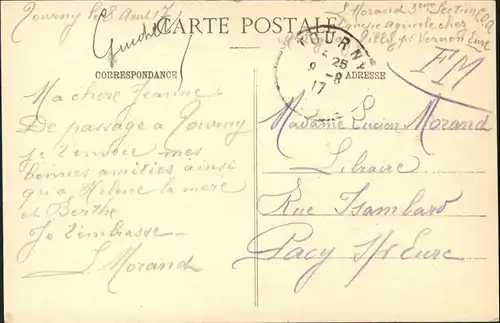 Tourny le 8 Aout 17
CARTE POSTALE
L Morand 3eme Section COA
Equipe agricole chez
Tilly pr Vernon Eure
FM
TOURNY
25
8 -8
17
CORRESPONDANCE
ADRESSE
Ma chere Jeanne
De passage a Tourny
je t'envoie mes
bonnes amities ainsi
qu'a Helene la mere
et Berthe
Je t'embrasse
L Morand
Madame Lucien Morand
Libraire
Rue Isambard
Pacy s/ Eure